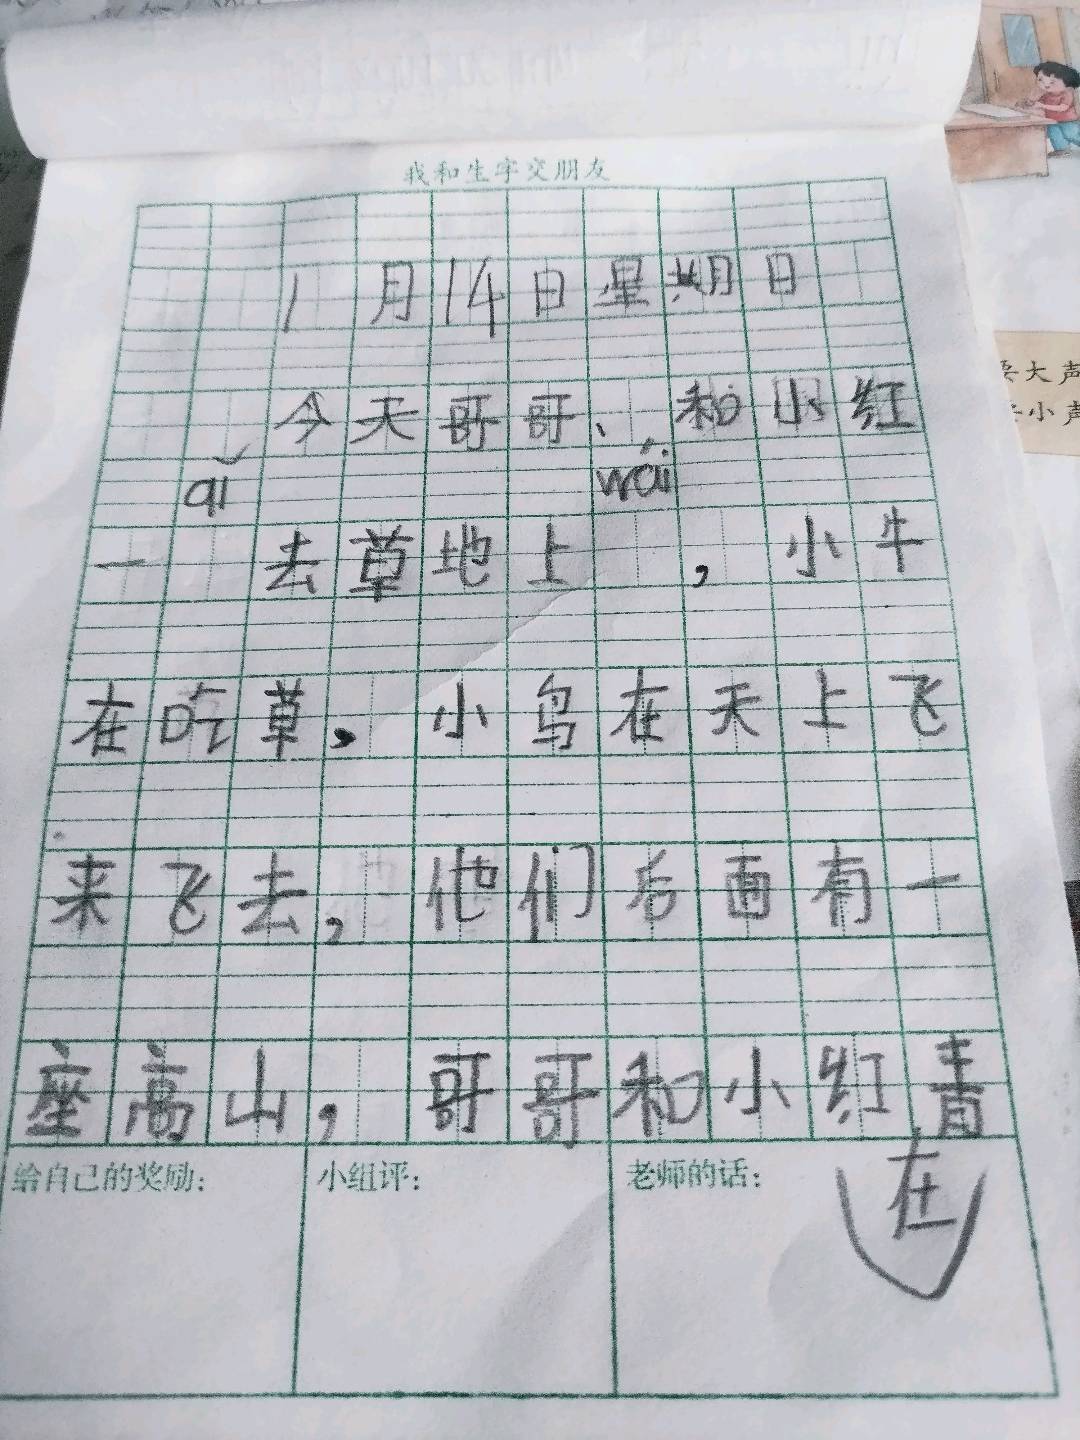 我和生字交朋友
1月14日星期日
今天哥哥、和小红
qǐ wái
一 去草地上 ，小牛
在吃草，小鸟在天上飞
来飞去，他们后面有一
座高山，哥哥和小红青
在
给自己的奖励：
小组评：
老师的话：
大声
小声